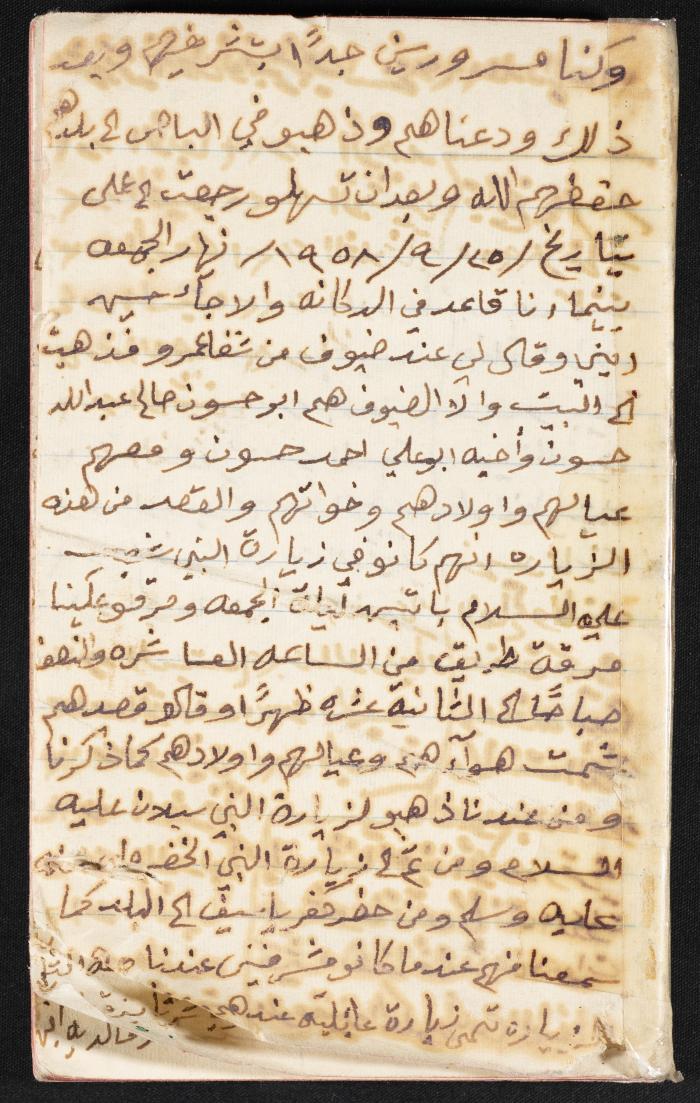 وكنا مسرورين جداً بتشرفيهم وبعد
ذلك ودعناهم وذهبو في الباص الى بلدهم
حفظهم الله وبعدان تسهلو رجعت الى على
بتاريخ /٢٥/٩/١٩٥٨/ نهار الجمعه
بينما انا قاعد في الدكانه والا جاء حسيه
ابني وقال لي عند ضيوف من شفاعمرو فذهبت
الى البيت والا الضيوف هم ابو حسون صالح عبدالله
حسون وأخيه ابو علي احمد حسون ومعهم
عيالهم واولادهم وخواتهم والقصد من هذه
الزياره انهم كانو في زيارة النبي شعيب
عليه السلام باتيين ليلة الجمعه ومرقو علينا
مرقة طريق من الساعه العاشره والنصف
صباحًا الى الثانية عشره ظهرًا وقالو قصدهم
شمت هوآء هم وعيالهم واولادهم كما ذكرنا
ومن عندنا ذهبو لزيارة النبي سبلان عليه
السلام ومن ثم الى زيارة النبي الخضر
عليه وسلم ومن خضر كفرياسيف الى البلد كما
سمعنا منهم عندما كانو مشرفين عندنا
زياره تمى زيارة عائلية عندهم